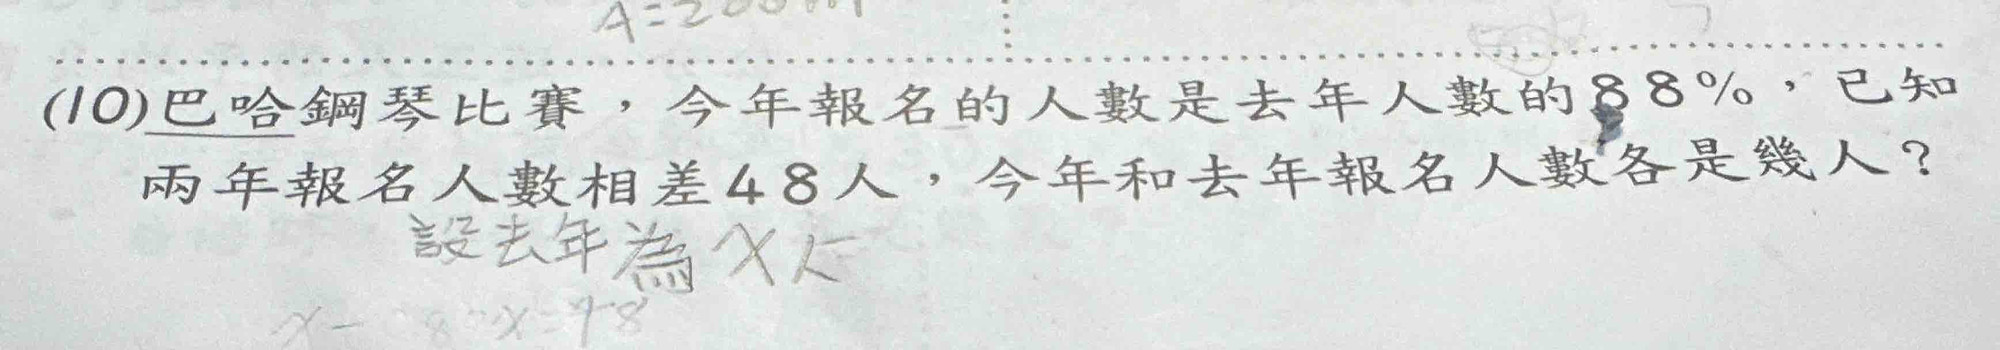 A=200
(10)巴哈鋼琴比賽，今年報名的人數是去年人數的88%，已知
兩年報名人數相差48人，今年和去年報名人數各是幾人？
設去年為X人